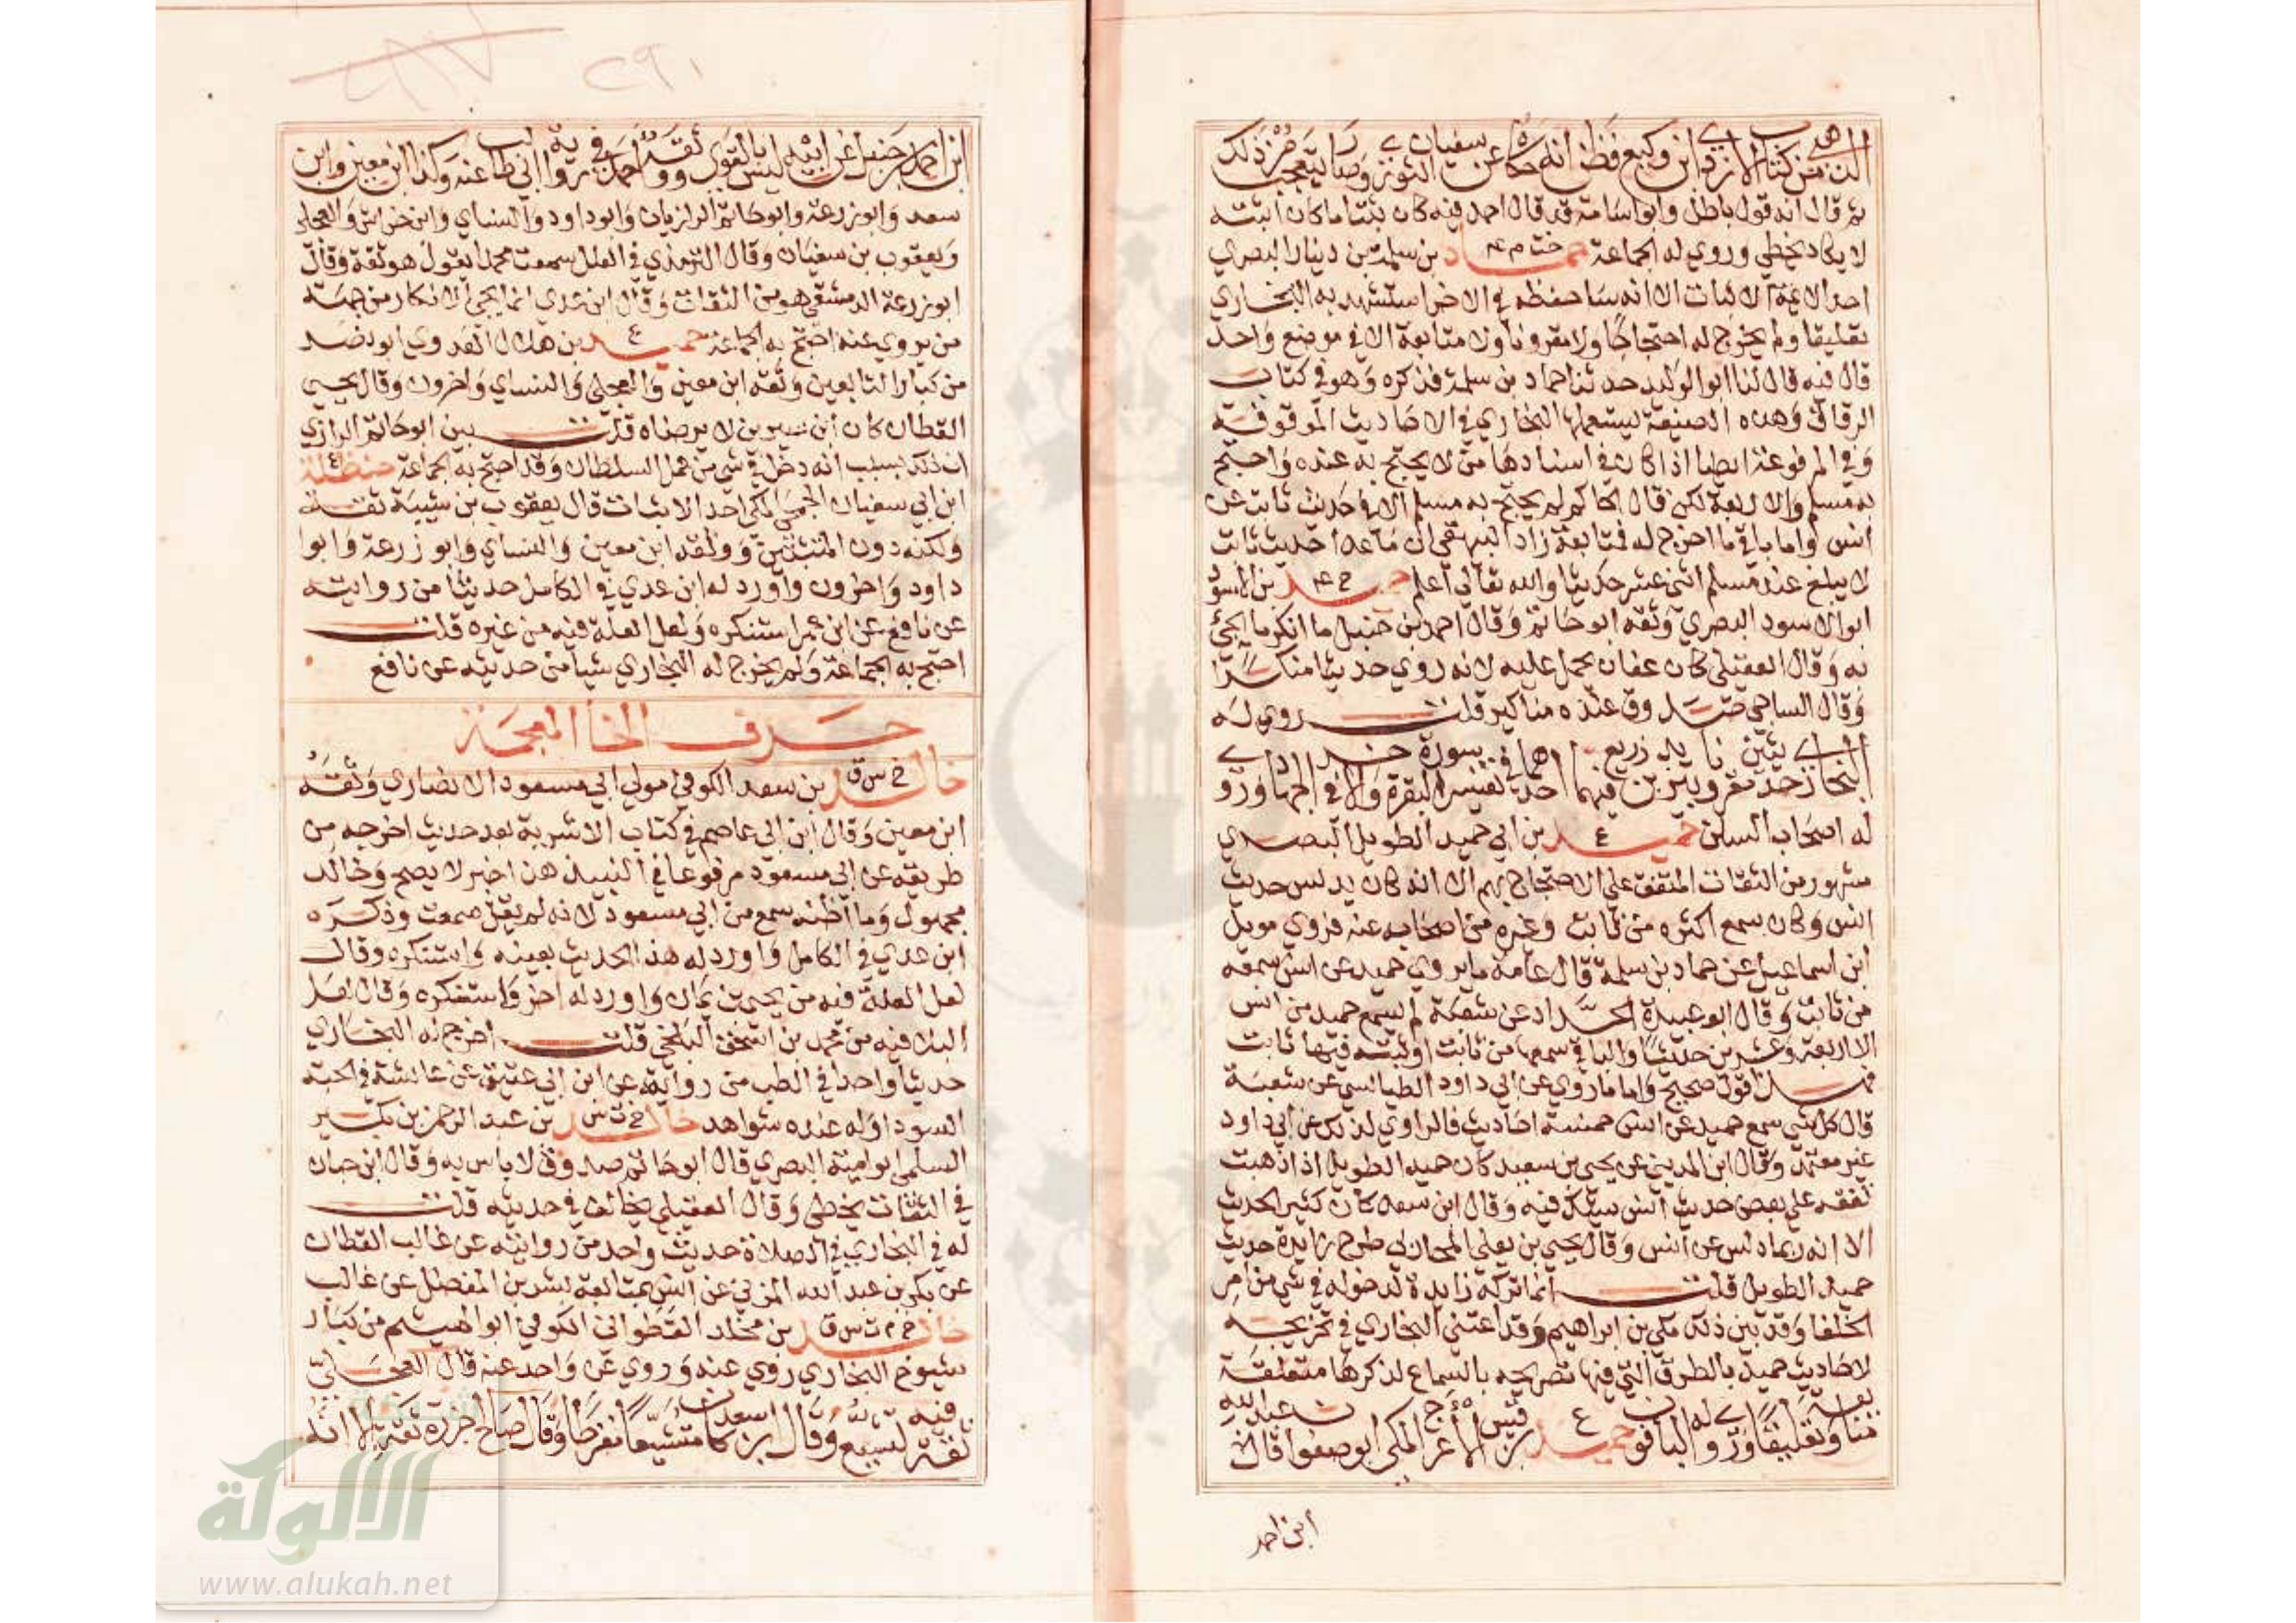 الذهبي من كتاب الازدي ابن وكيع فظن انه حكاه عن سفيان الثوري وصار يتعجب من ذلك
ثم قال انه قول باطل وابو اسامة قد قال احمد فيه كان ثبتا ما كان اثبته
لا يكاد يخطي وروي له الجماعة خت م ٤ حماد بن سلمة بن دينار البصري
احد الائمة الاثبات الا انه سا حفظه في الاخر استشهد به البخاري
تعليقا ولم يخرج له احتجاجا ولا مقرونا ولا متابعة الا في موضع واحد
قال فيه قال لنا ابو الوليد حدثنا حماد بن سلمة فذكره وهو في كتاب
الرقاق وهذه الصيغة يستعملها البخاري في الاحاديث الموقوفة
وفي المرفوعة ايضا اذا كان في اسنادها من لا يحتج به عنده واحتج
به مسلم والاربعة لكن قال الحاكم لم يحتج به مسلم الا في حديث ثابت عن
انس واما باقي ما اخرج له فمتابعة زاد البيهقي ان ما عدا حديث ثابت
لا يبلغ عند مسلم اثني عشر حديثا والله تعالى اعلم خ ٤ حميد بن الاسود
ابو الاسود البصري وثقه ابو حاتم وقال احمد بن حنبل ما انكر ما يجي
به وقال العقيلي كان عفان يحمل عليه لانه روي حديثا منكرا
وقال الساجي صدوق عنده مناكير قلت روي له
البخاري حديثين مقرونا بيزيد بن زريع فيهما احدهما في تفسير سورة البقرة والاخر في الجهاد وروي
له اصحاب السنن ع حميد بن ابي حميد الطويل البصري
مشهور من الثقات المتفق علي الاحتجاج بهم الا انه كان يدلس حديث
انس وكان سمع اكثره من ثابت وغيره من اصحابه عنه فروي مويل
ابن اسماعيل عن حماد بن سلمة قال عامة ما يروي حميد عن انس سمعه
من ثابت وقال ابو عبيدة الحداد عن شعبة لم يسمع حميد من انس
الا اربعة وعشرين حديثا والباقي سمعها من ثابت او ثبته فيها ثابت
فهذا قول صحيح واما ما روي عن ابي داود الطيالسي عن شعبة
قال كل شي سمع حميد عن انس خمسة احاديث فالراوي لذلك عن ابي داود
غير معتمد وقال ابن المديني عن يحيي بن سعيد كان حميد الطويل اذا ذهبت
تقفه علي بعض حديث انس يشك فيه وقال ابن سعد كان كثير الحديث
الا انه ربما دلس عن انس وقال يحيي بن يعلي المحاربي طرح زايدة حديث
حميد الطويل قلت انما تركه زايدة لدخوله في شي من امر
الخلفا وقد بين ذلك مكي بن ابراهيم وقد اعتني البخاري في تخريجه
لاحاديث حميد بالطرق التي فيها تصريحه بالسماع لذكرها متعلقة
متابعة وتعليقا وروي له الباقون ع حميد بن قيس الاعرج المكي ابو صفوان قال عبد الله
ابن احمد
٢٩١
ابن احمد بن حنبل عن ابيه ليس بالقوي ووثقه احمد في رواية ابي طالب عنه وكذا ابن معين وابن
سعد وابو زرعة وابو حاتم الرازيان وابو داود والنساي وابن خراش والعجلي
ويعقوب بن سفيان وقال الترمذي في العلل سمعت محمدا يقول هو ثقة وقال
ابو زرعة الدمشقي هو من الثقات وقال ابن عدي انما يجي الانكار من جهة
من يروي عنه احتج به الجماعة ع حميد بن هلال العدوي ابو نصر
من كبار التابعين وثقه ابن معين والعجلي والنساي واخرون وقال يحيي
القطان كان ابن سيرين لا يرضاه قلت بين ابو حاتم الرازي
ان ذلك بسبب انه دخل في شي من عمل السلطان وقد احتج به الجماعة ع حنظلة
ابن ابي سفيان الجمحي المكي احد الاثبات قال يعقوب بن شيبة ثقة
ولكنه دون المتثبتين ووثقه ابن معين والنساي وابو زرعة وابوا
داود واخرون واورد له ابن عدي في الكامل حديثا من روايته
عن نافع عن ابن عمر استنكره ولعل العلة فيه من غيره قلت
احتج به الجماعة ولم يخرج له البخاري شيا من حديثه عن نافع
حرف الخا المعجمة
خ س ق خالد بن سعد الكوفي مولي ابي مسعود الانصاري وثقه
ابن معين وقال ابن ابي عاصم في كتاب الاشربة بعد حديث اخرجه من
طريقه عن ابي مسعود مرفوعا في النبيذ هذا خبر لا يصح وخالد
مجهول وما اظنه سمع من ابي مسعود لانه لم يقل سمعت وذكره
ابن عدي في الكامل واورد له هذا الحديث بعينه واستنكره وقال
لعل العلة فيه من يحيي بن يمان واورد له اخر واستنكره وقال لعل
البلا فيه من محمد بن اسحق البلخي قلت اخرج له البخاري
حديثا واحدا في الطب من روايته عن ابن ابي عتيق عن عائشة في الحبة
السودا وله عنده شواهد خ ت س خالد بن عبد الرحمن بن بكير
السلمي ابو امية البصري قال ابو حاتم صدوق لا باس به وقال ابن حبان
في الثقات يخطي وقال العقيلي يخالف في حديثه قلت
له في البخاري في الصلاة حديث واحد من روايته عن غالب القطان
عن بكر بن عبد الله المزني عن انس بمتابعة بشر بن المفضل عن غالب
خ م ت س ق خالد بن مخلد القطواني الكوفي ابو الهيثم من كبار
شيوخ البخاري روي عنه وروي عن واحد عنه قال العجلي
ثقة فيه تشيع وقال ابن سعد كان متشيعا مفرطا وقال صالح جزرة ثقة الا انه
الألوكة
www.alukah.net